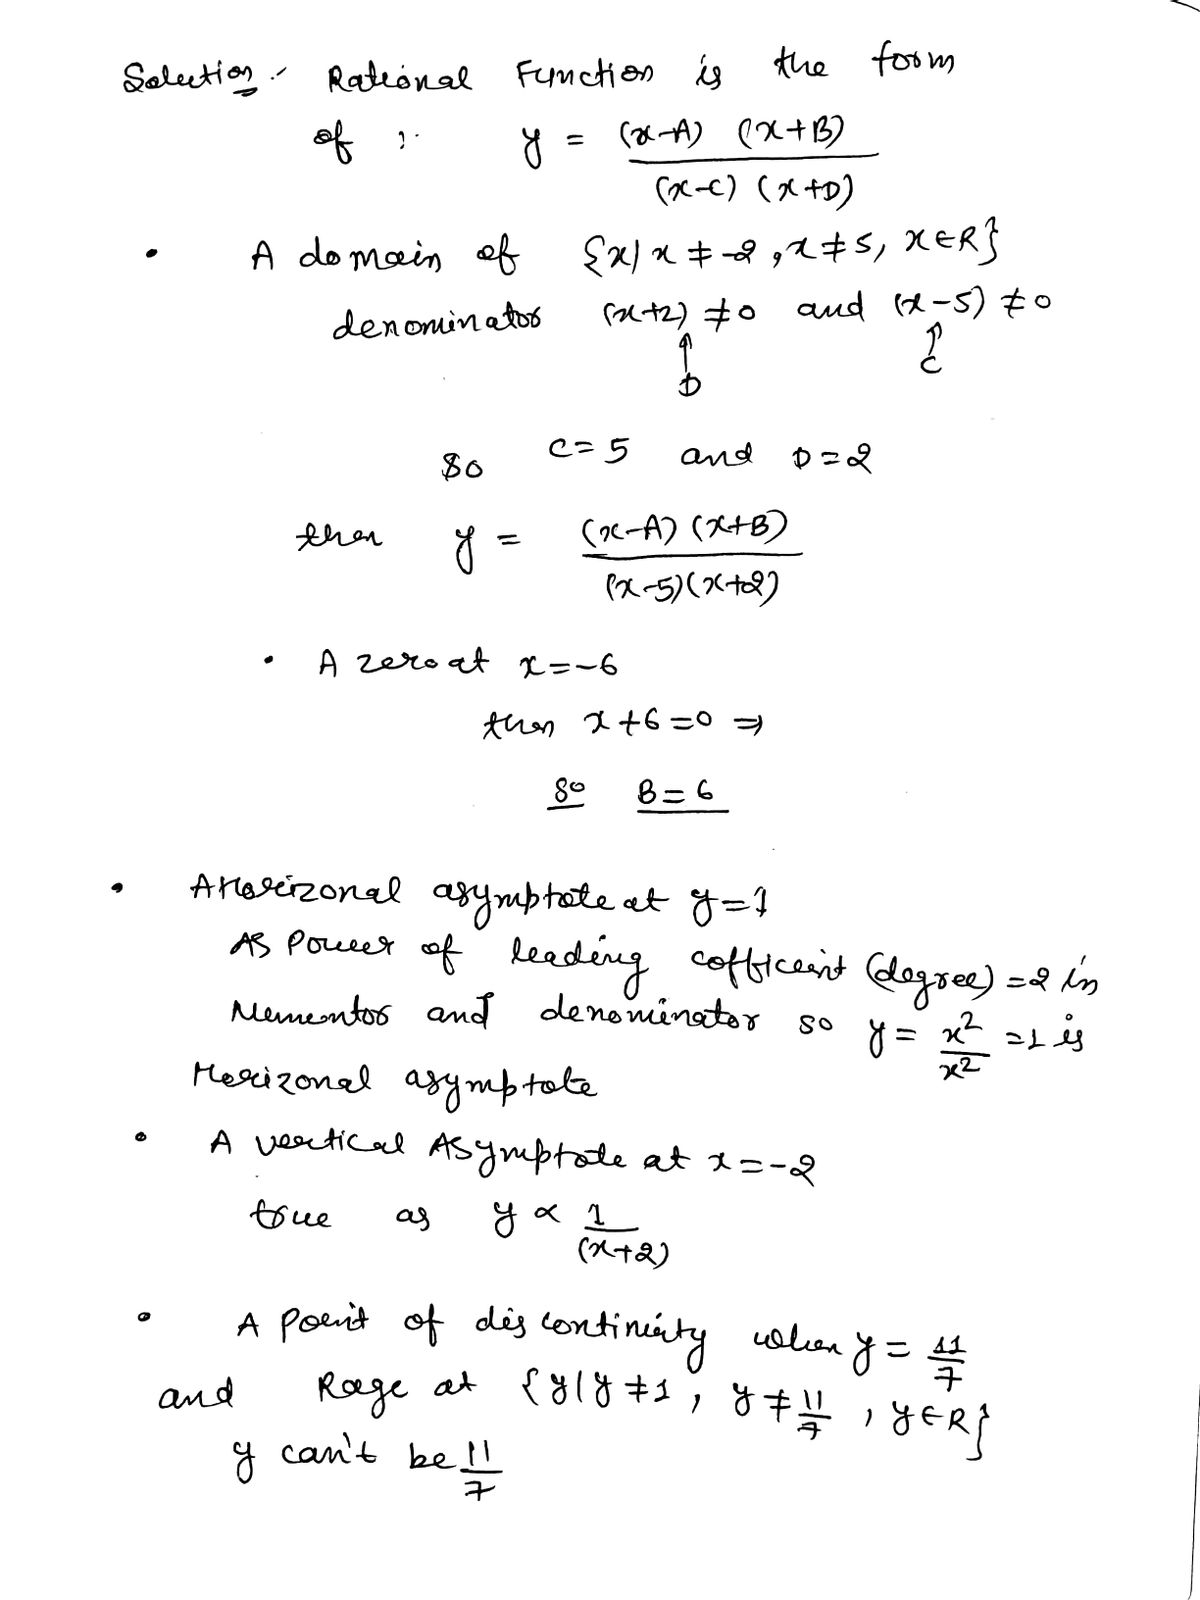 Solution :- Rational Function is the form
of :- y = (x-A) (x+B) / (x-C) (x+D)
• A domain of {x| x ≠ -2, x ≠ 5, x ∈ R}
denominator (x+2) ≠ 0 and (x-5) ≠ 0
↑ ↑
D C
So C = 5 and D = 2
then y = (x-A) (x+B) / (x-5)(x+2)
• A zero at x = -6
then x + 6 = 0 ⇒
So B = 6
• A Horizonal asymptote at y = 1
As Power of leading cofficeint (degree) = 2 in
Nementor and denominator so y = x² / x² = 1 is
Horizonal asymptote
• A vertical Asymptote at x = -2
true as y ∝ 1 / (x+2)
• A Point of discontinuity when y = 11/7
and Rage at {y|y ≠ 1, y ≠ 11/7, y ∈ R}
y can't be 11/7